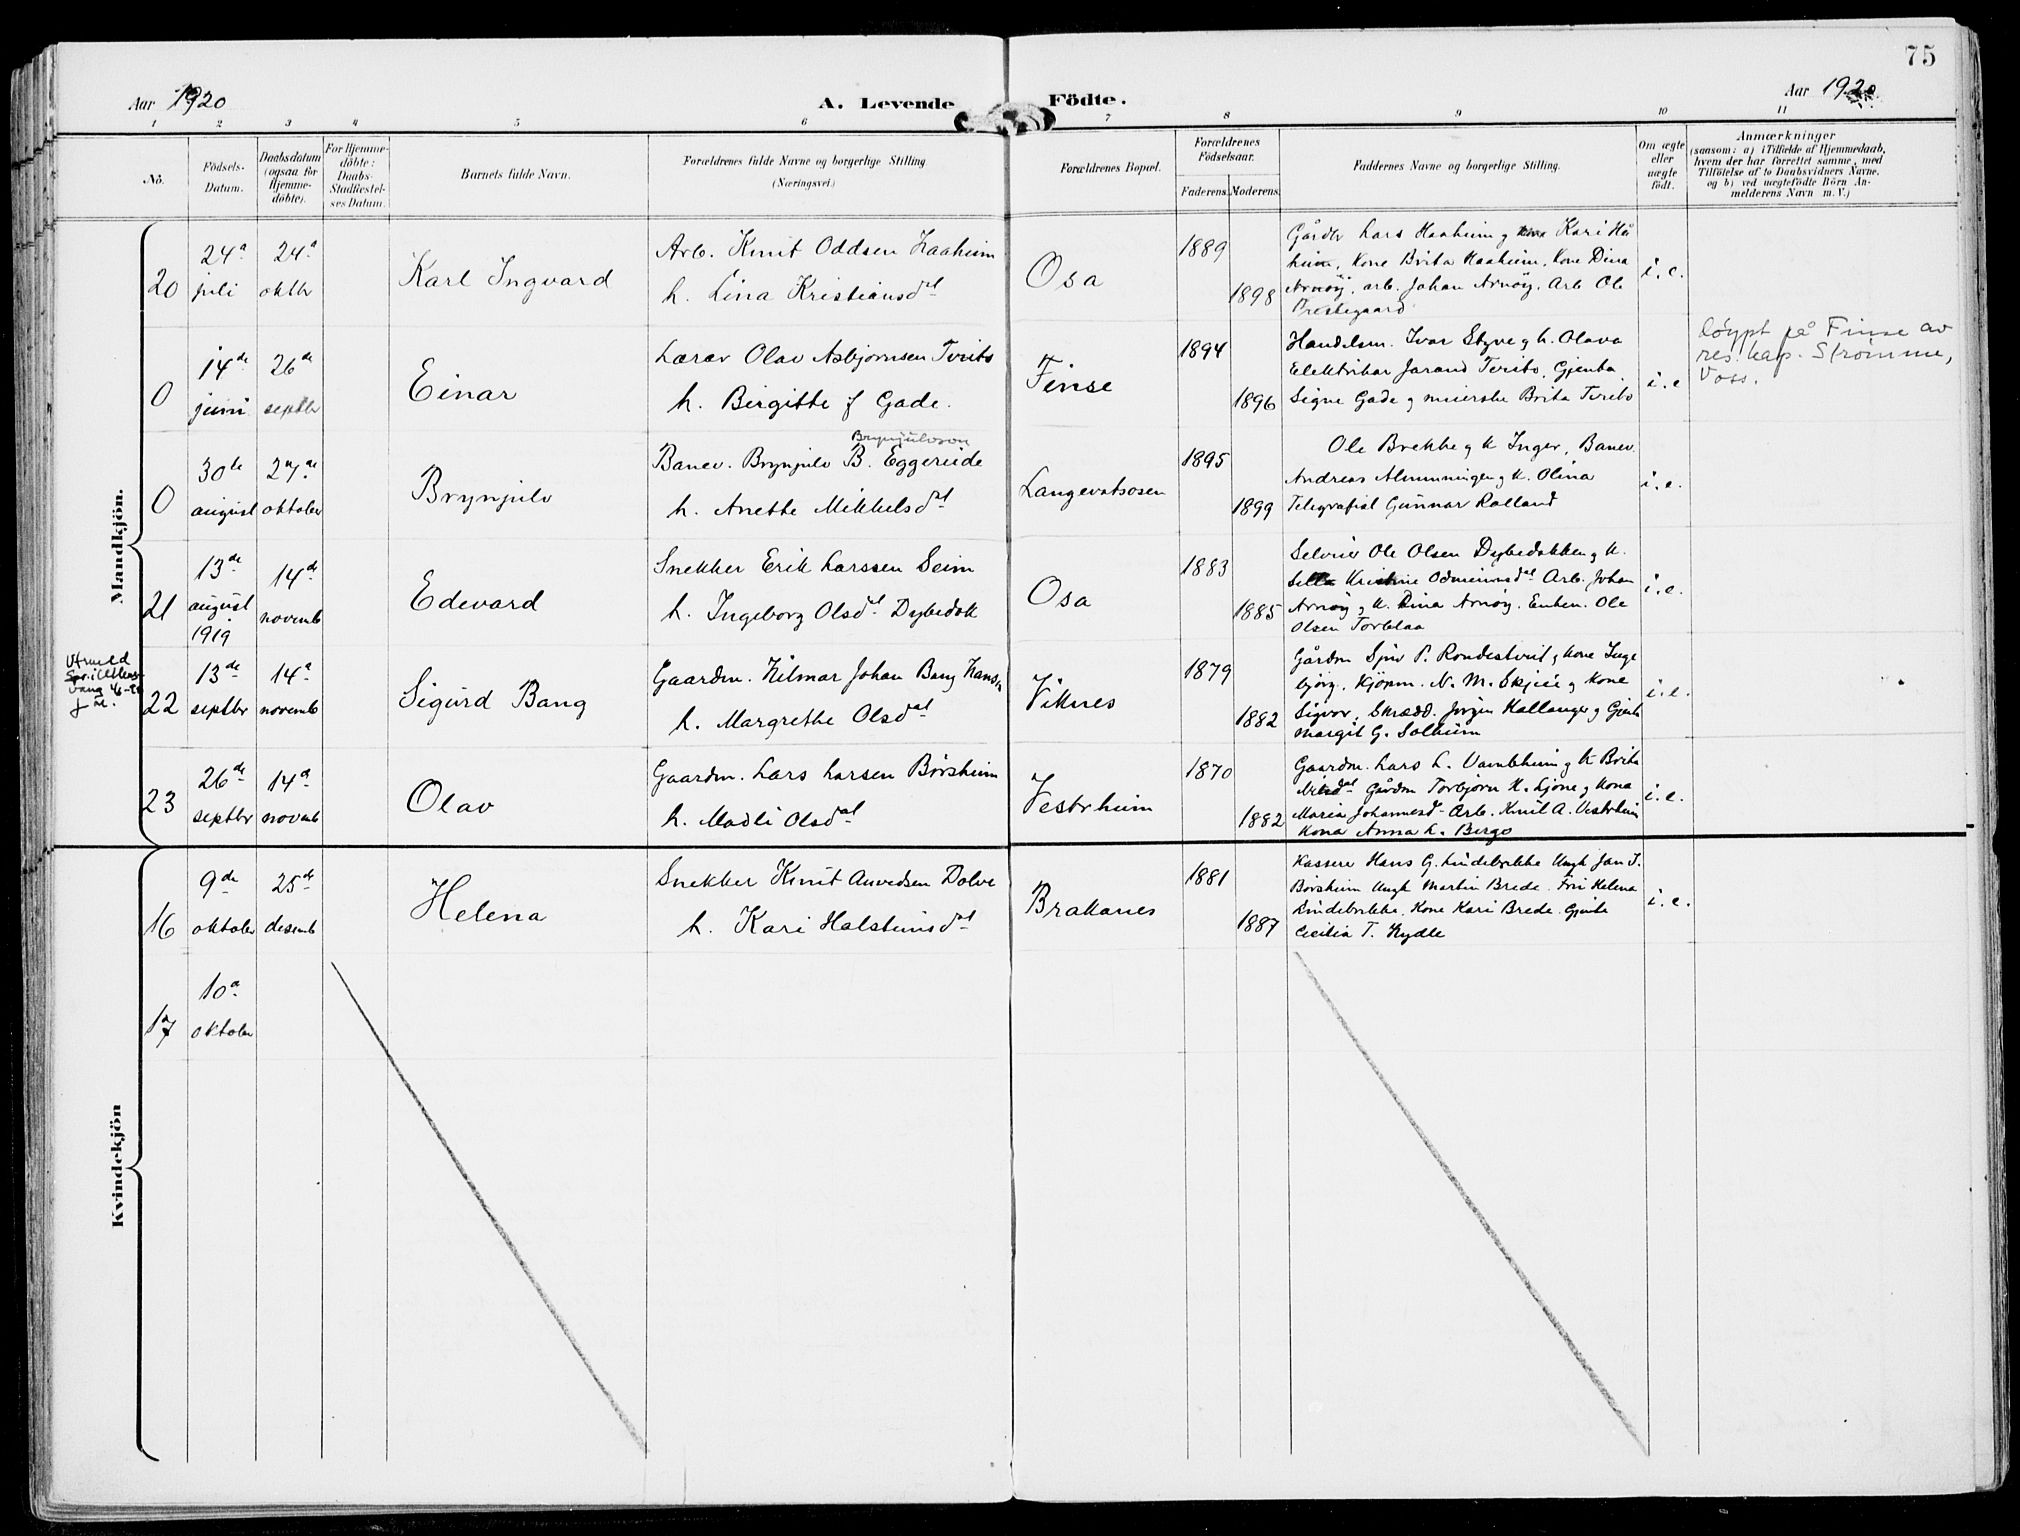 75
Aar 1920
A. Levende Födte.
Aar 1920
1 2 3 4 5 6 7 8 9 10 11
No.
Födsels-
Datum.
Daabsdatum
(ogsaa for
Hjemme-
döbte).
For Hjemme-
döbte:
Daabs-
Stadfæstel-
ses Datum.
Barnets fulde Navn.
Forældrenes fulde Navne og borgerlige Stilling
(Næringsvei.)
Forældrenes Bopæl.
Forældrenes
Födselsaar.
Faderens. Moderens.
Faddernes Navne og borgerlige Stilling.
Om ægte
eller
uægte
födt.
Anmærkninger
(saasom: a) i Tilfælde af Hjemmedaab,
hvem der har forrettet samme, med
Tilföielse af to Daabsvidners Navne,
og b) ved uægtefödte Börn An-
melderens Navn m. V.)
Mandkjön.
20
24a
juli
24a
oktbr
Karl Ingvard
Arb. Knut Oddsen Haaheim
h. Lina Kristiansdat
Osa
1889
1898
Gårdbr Lars Haaheim g Kari Hå
heim, Kone Brita Haaheim, Kone Dina
Arnöy, arb. Johan Arnöy. Arb Ole
Prestegaard
i.e.
0
14de
juni
26de
septbr
Einar
Lærer Olav Asbjørnsen Tveito
h. Birgitte f Gade.
Finse
1894
1896
Handelsm. Ivar Styve g h. Olava
Elektriker Jarand Tveito, Gjenta
Signe Gade g meierske Brita Tveito
i.e
löypt på Finse av
res. kap. Strömme,
Voss.
0
30te
august
27de
oktober
Brynjulv
Brynjulvson
Banev. Brynjulv B. Eggereide
h. Anette Mikkelsdat
Langevatsosen
1895
1899
Ole Brekke g k Inger, Banev.
Andreas Almenningen g k. Olina
Telegrafist Gunnar Rolland
i.e.
21
13de
august
1919
14de
novemb
Edevard
Snekker Erik Larssen Seim
h. Ingeborg Olsdt Dybedok
Osa
1883
1885
Selveier Ole Olsen Dybedokken g k.
Kristine Odmundsdat Arb. Johan
Arnöy g k. Dina Arnöy. Enkem. Ole
Olsen Torblaa
i.e.
Utmeld
22
13de
septbr
14a
novemb
Sigurd Bang
Gaardm. Hilmar Johan Bang Hansen
h. Margrethe Olsdat
Viknes
1879
1882
Gårdm P. Rondestveit g kone Inge
björg, Kjöpm. N. M. Skjeie g Kone
Sigvor, Skrædd. Jörgen Hallanger g Gjenta
Margit G. Solheim
i.e.
23
26de
septbr
14a
novemb
Olav
Gaardm. Lars Larsen Börsheim
h. Madli Olsdat
Vestrheim
1870
1882
Gaardm. Lars L. Vambheim g k Brita
Nilsdat Gårdm Torbjörn K. Ljone g Kona
Maria Johannesd. Arb. Knut A. Vestrheim
Kona Anna L. Bergo
i.e.
Kvindekjön
16
9de
oktober
25de
desemb
Helena
Snekker Knut Amedsen Dolve
h. Kari Halsteinsdat
Brakanes
1881
1887
Kasserer Hans G. Lindebrekke Ungk Jan J.
Börsheim Ungk Martin Brede. Fru Helena
Lindebrekke, Kone Kari Brede. Gjenta
Cecilia T. Hydle
i.e.
17
10a
oktober